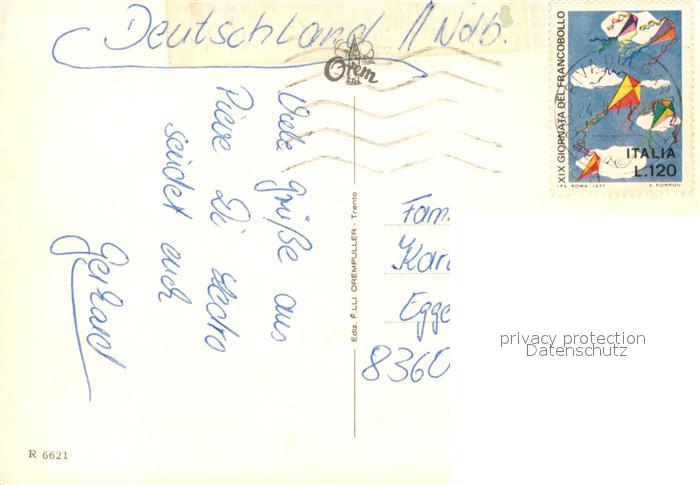 Deutschland // Ndb.
Orem
Viele Grüße aus
Pieve Di
sendet euch
Gerhard
Ediz. F.LLI OREMPULLER - Trento
Fam.
Egge
8360
R 6621
XIX GIORNATA DEL FRANCOBOLLO
ITALIA
L.120
I.P.S. ROMA 1977 A. POMPON
privacy protection
Datenschutz